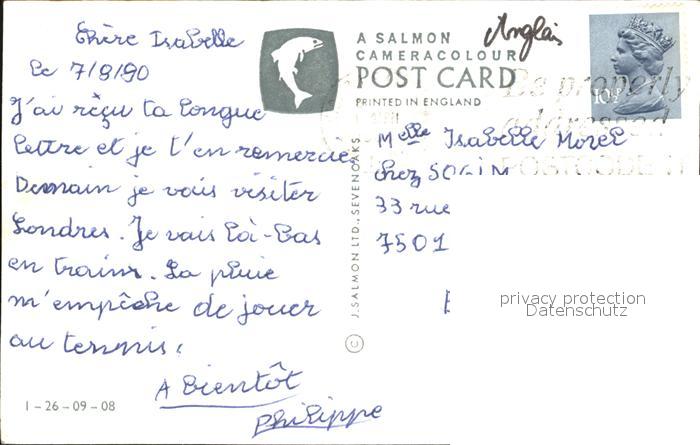 Chère Isabelle
Le 7/8/90
J'ai réçu ta longue
lettre et je t'en remercie.
Demain je vais visiter
Londres. Je vais là-bas
en train. La pluie
m'empêche de jouer
au tennis.
A bientôt
Philippe
1-26-09-08
A SALMON
CAMERACOLOUR
POST CARD
PRINTED IN ENGLAND
J. SALMON LTD., SEVENOAKS
©
Anglais
10½P
Be properly
addressed
POSTCODE IT
Melle Isabelle Morel
chez
33 rue
7501
privacy protection
Datenschutz